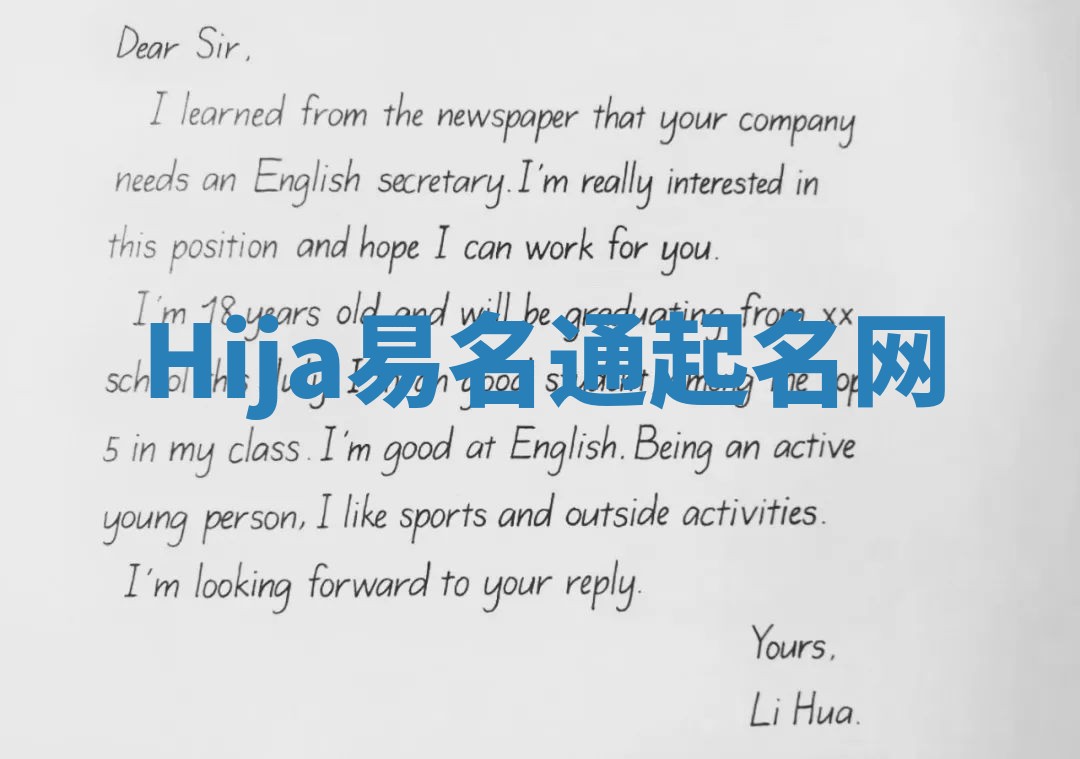 Dear Sir,
I learned from the newspaper that your company
needs an English secretary. I'm really interested in
this position and hope I can work for you.
I'm 18 years old and will be graduating from xx
Hija易名通起名网
school this July. I'm good student among the top
5 in my class. I'm good at English. Being an active
young person, I like sports and outside activities.
I'm looking forward to your reply.
Yours,
Li Hua.